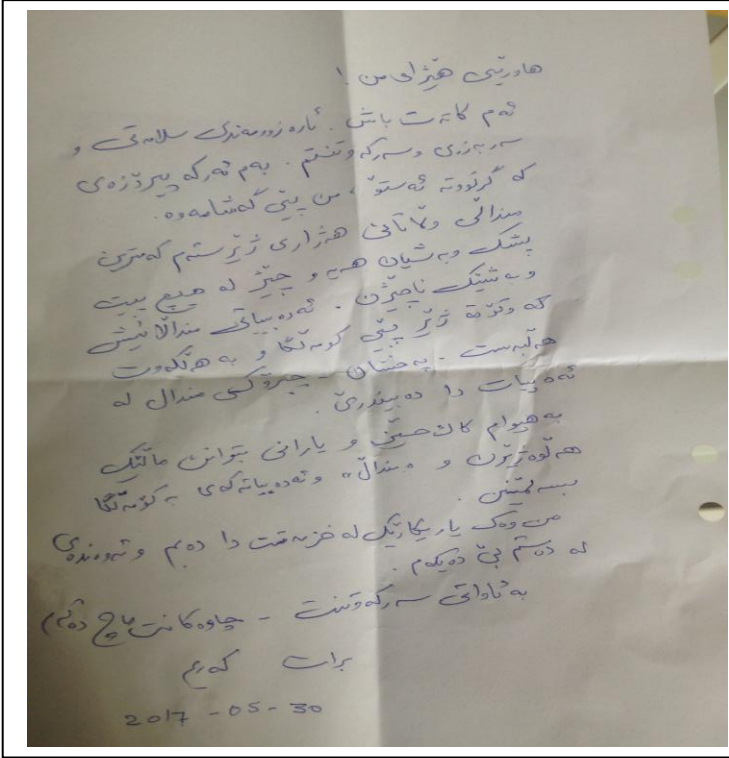 هاوڕێی هێژای من !
ئەم کاتەت باش . ئارەزوومەندی سلامەتی و
سەربەرزی و سەرکەوتنتم . بەم ئەرکە پیرۆزەی
کە گرتووتە ئەستۆ ، من پێی گەشامەوە .
منداڵی وڵاتانی هەژاری ژێر ستەم کەمترین
پشک و بەشیان هەیە و چێژ لە هیچ بیت
وبەشێک ناچێژن . ئەدەبیاتی منداڵانیش
کە وتۆتە ژێر پێی کۆمەڵگا و بە هەڵکەوت
هەڵبەست - پەخشان - چیرۆکی منداڵ لە
ئەدەبیات دا دەبیندرێ .
بە هیوام کاک حسێن و یارانی بتوانن ماڵێک
هەڵوەژێرن و منداڵ و ئەدەبیاتەکەی بە کۆمەڵگا
بسەلمێنن .
من وەک یاریکارێک لە خزمەت دا دەبم و ئەوەندەی
لە دەستم بێ دەیکەم .
بە ئاواتی سەرکەوتنت - چاوەکانت ماچ دەکەم
برات کەریم
2017 - 05 - 30